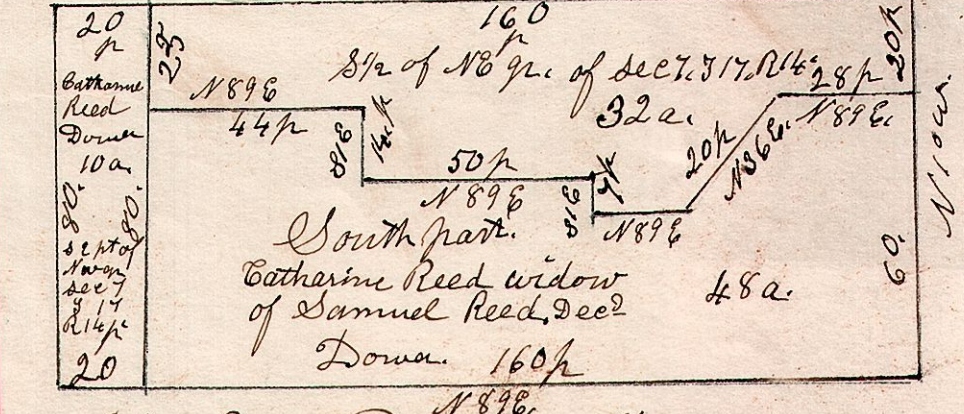 20
p
Catharine
Reed
Dower
10 a.
80.
80.
S E pt of
N W qr
sec 7
T 17
R 14
20
160
p
S 1/2 of N E qr. of sec 7. T 17. R 14.
32 a.
N 89 E
44 p
S 1 E
14 p
50 p
N 89 E
S 1 E
7 p
N 89 E
20 p
N 36 E.
28 p
N 89 E.
20 p
60.
South part.
Catharine Reed widow
of Samuel Reed, Decd
Dower.
48 a.
160 p
N 89 E.